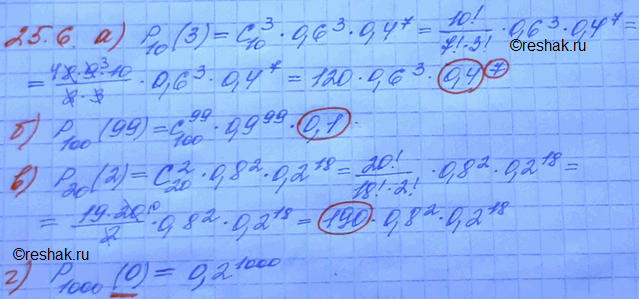 25.6. а) P₁₀(3) = C₁₀³ · 0,6³ · 0,4⁷ = 10!/(7!·3!) · 0,6³ · 0,4⁷ =
= (⁴8·9³·10)/(2·3) · 0,6³ · 0,4⁷ = 120 · 0,6³ · 0,4⁷
©reshak.ru
б) P₁₀₀(99) = C₁₀₀⁹⁹ · 0,9⁹⁹ · 0,1
в) P₂₀(2) = C₂₀² · 0,8² · 0,2¹⁸ = 20!/(18!·2!) · 0,8² · 0,2¹⁸ =
= (19·20¹⁰)/2 · 0,8² · 0,2¹⁸ = 190 · 0,8² · 0,2¹⁸
©reshak.ru
г) P₁₀₀₀(0) = 0,2¹⁰⁰⁰